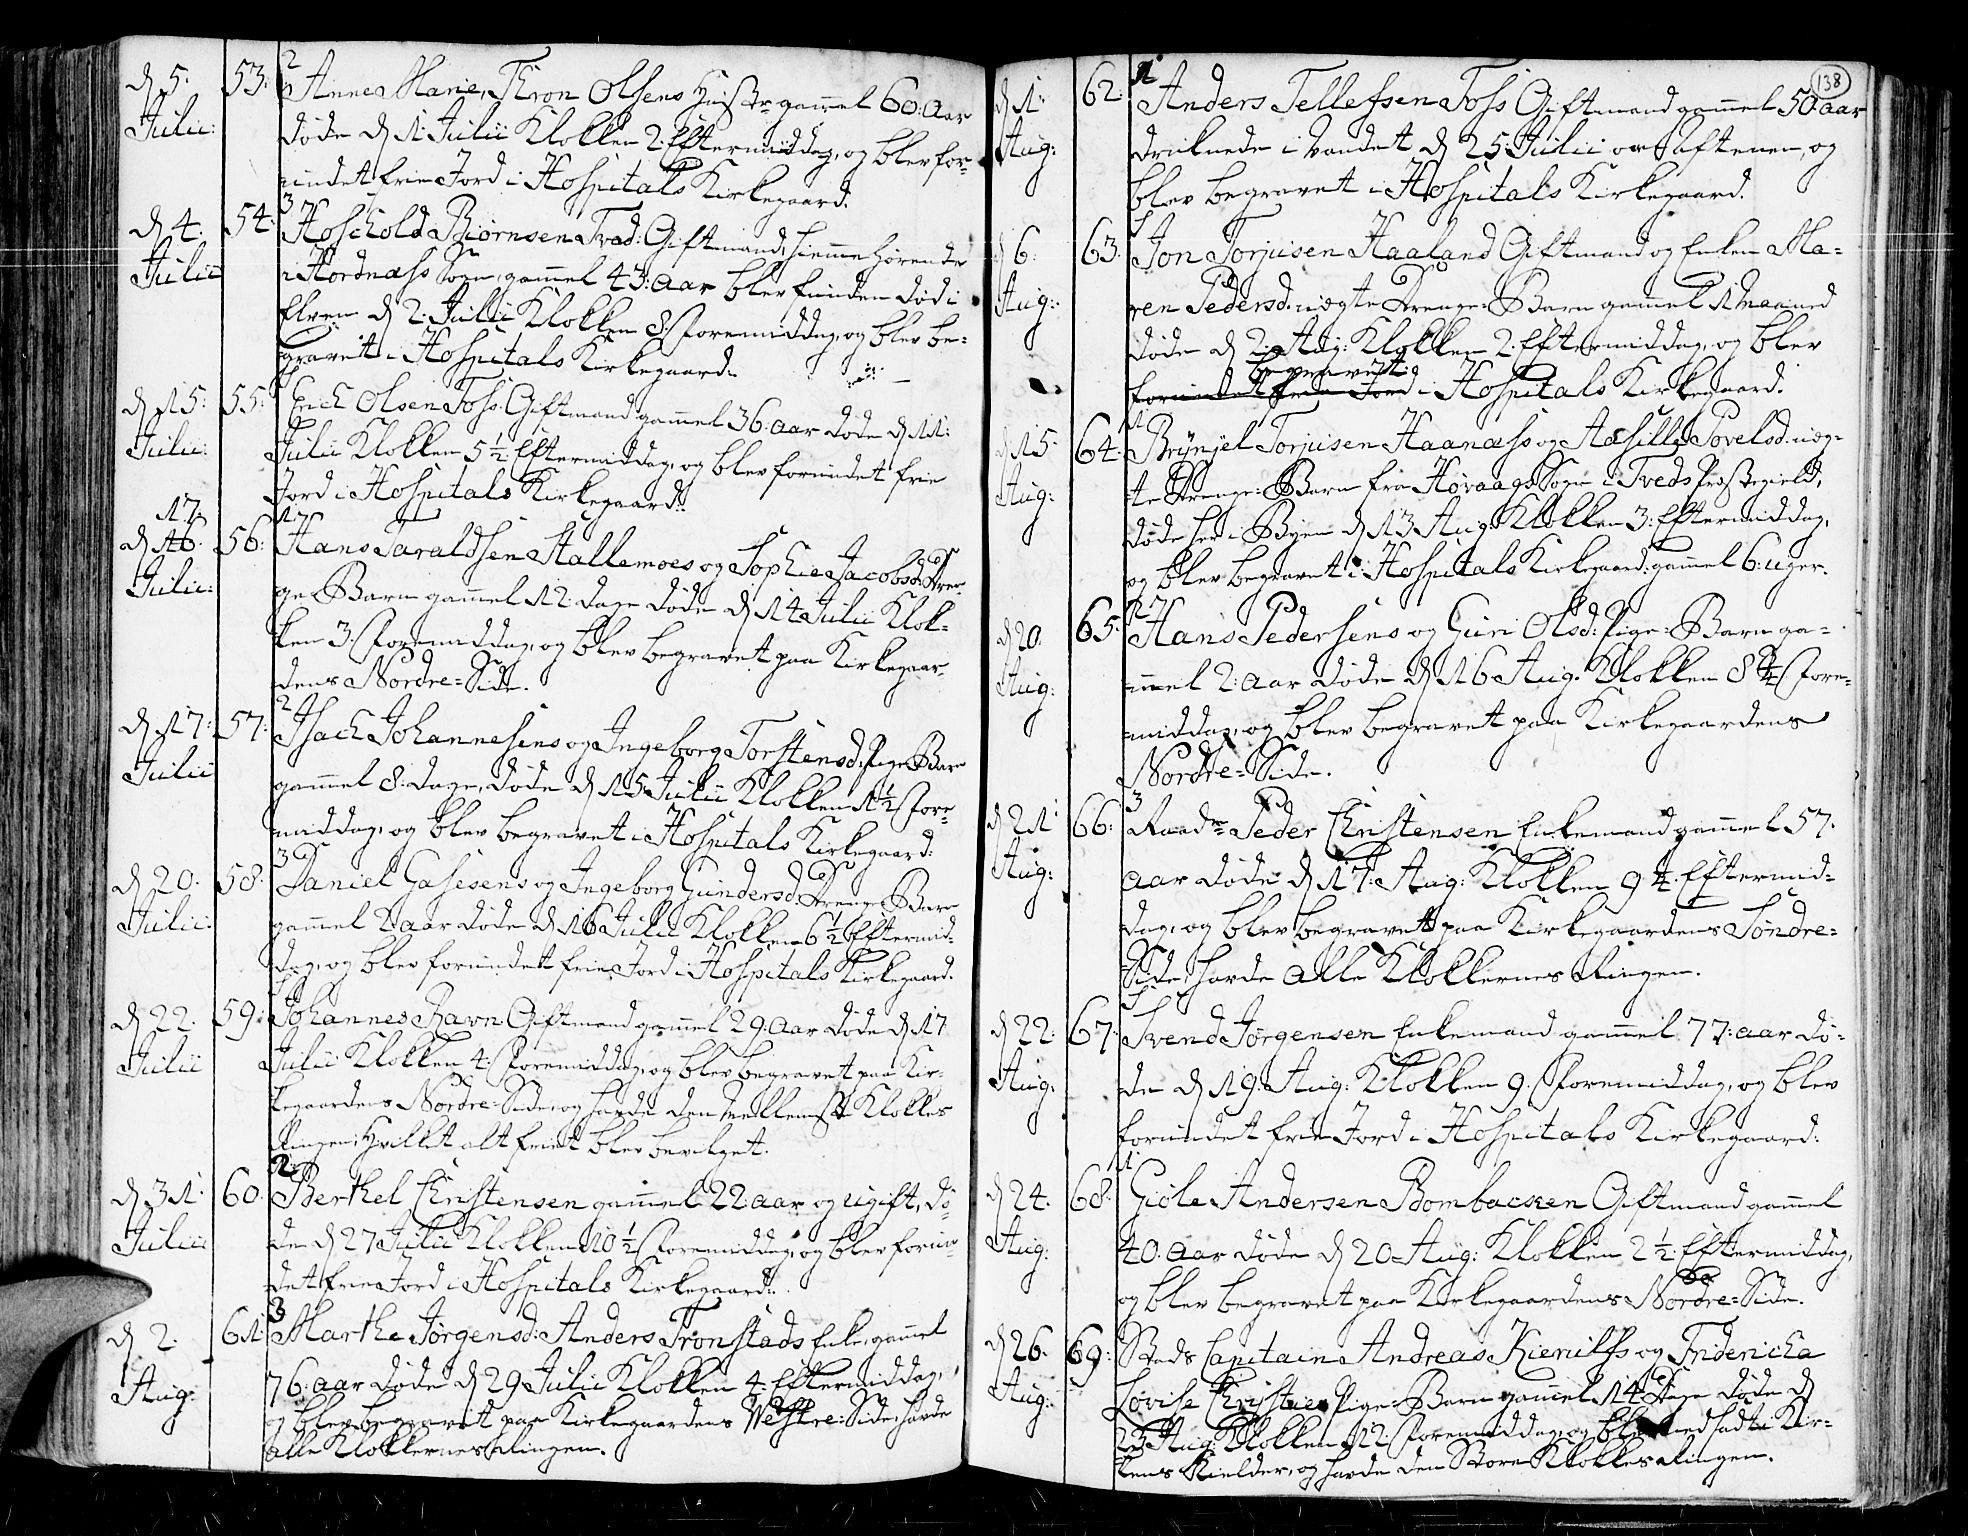 d 5. 53. 2 Anne Marie, Thron Olsens Hustr. gamel 60: Aar
Julii: døde d 1 Julii Klokken 2. Eftermiddag, og blev for-
rundet frie Jord i Hospitals Kirkegaard.
d 4. 54. 3 Hoschold Biørnsen Tvad: Giftmand, hiemmehørende
Julii i Hordnæss Sogn, gamel 43. Aar blev funden død i
Elven d 2. Julii Klokken 8. Formiddag, og blev be-
gravet i Hospitals Kirkegaard.
d 15. 55. Erich Olsen Foss. Giftmand gamel 36. Aar døde d 11.
Julii: Julii Klokken 5½ Eftermiddag, og blev forundet frie
Jord i Hospitals Kirkegaard.
17.
d 16. 56. 1 Hans Taraldsen Stallemoes og Sophie Jacobsd. Dren-
Julii: ge-Barn gamel 12. dage døde d 14 Julii Klok-
ken 3. Formiddag, og blev begravet paa Kirkegaar-
dens Nordre-Side.
d 17: 57: 2 Isach Johannesens og Ingeborg Torstensd. Pige-Barn
Julii gammel 8. dage, døde d 15. Julii Klokken 1½ Fore-
middag, og blev begravet i Hospitals Kirkegaard:
d 20. 58. 3 Daniel Gasesens og Ingeborg Gundersd. Drenge-Barn
Julii: gamel 2 aar døde d 16 Julii Klokken 6½ Eftermid-
dag, og blev forundet frie Jord i Hospitals Kirkegaard.
d 22. 59. Johannes Ravn Giftmand gamel 29. Aar døde d 17
Julii Julii Klokken 4. Foremiddag, og blev begravet paa Kir-
kegaardens Nordre-Side, og havde den mellemste Klokkes
Ringen, hvilket alt frit blev bevilget.
d 31. 60. 2 Berthel Christensen gamel 22. aar og ugift, dø-
Julii: de d 27 Julii Klokken 10½ Foremiddag, og blev forun-
det frie Jord i Hospitals Kirkegaard.
d 2. 61. 3 Marthe Jørgensd: Anders Tronstads Enke, gamel
Aug: 76. aar døde d 29 Julii Klokken 4. Eftermiddag,
og blev begravet paa Kirkegaardens Westre-Side havde
alle Klokkernes Ringen.
138
d 1. 62. 1 Anders Tellefsen Foss Giftmand gamel 50. aar
Aug: druknede i Vandet d 25. Julii om Aftenen, og
blev begravet i Hospitals Kirkegaard.
d 6. 63. Jon Torjusen Haaland Giftmand og Enken Ma-
Aug: ren Pedersd. uægte Drenge-Barn gamel 1 Maaned
døde d 2. Aug: Klokken 2. Eftermiddag, og blev
begravet
forundet frie Jord i Hospitals Kirkegaard.
d 15 64. 1 Brynjel Torjusen Haanæss og Aasille Povelsd. uæg-
Aug: te Drenge-Barn fra Høvaags Sogn i Tveds Præstegield,
døde her i Byen d 13 Aug: Klokken 3. Eftermiddag,
og blev begravet i Hospitals Kirkegaard: gammel 6. uger.
d 20. 65. Hans Pedersens og Guri Olsd: Pige-Barn ga-
Aug: mmel 2. aar døde d 16 Aug. Klokken 8¼ Fore-
middag, og blev begravet paa Kirkegaardens
Nordre-Side.
d 21 66. 3 Peder Christensen Enkemand gammel 57.
Aug: aar døde d 17. Aug: Klokken 9¼. Eftermid-
dag, og blev begravet paa Kirkegaardens Søndre-
Side, havde alle Klokkernes Ringen.
d 22. 67. Svend Jørgensen Enkemand gammel 77. aar dø-
Aug: de d 19. Aug: Klokken 9. Foremiddag, og blev
forundet frie Jord i Hospitals Kirkegaard:
d 24. 68. 1 Giøle Andersen Bombacken Giftmand gammel
Aug: 40. aar døde d 20 Aug: Klokken 2½. Eftermiddag,
og blev begravet paa Kirkegaardens Nordre-Side.
d 26. 69. Stads Capitain Andreas Kierulfs og Friderica
Aug: Lovise Christies Pige-Barn gamel 14 Dage døde d
23 Aug: Klokken 12. Foremiddag, og blev nedsadt i Kir-
kens Kielder, og havde den Store Klokkes Ringen.